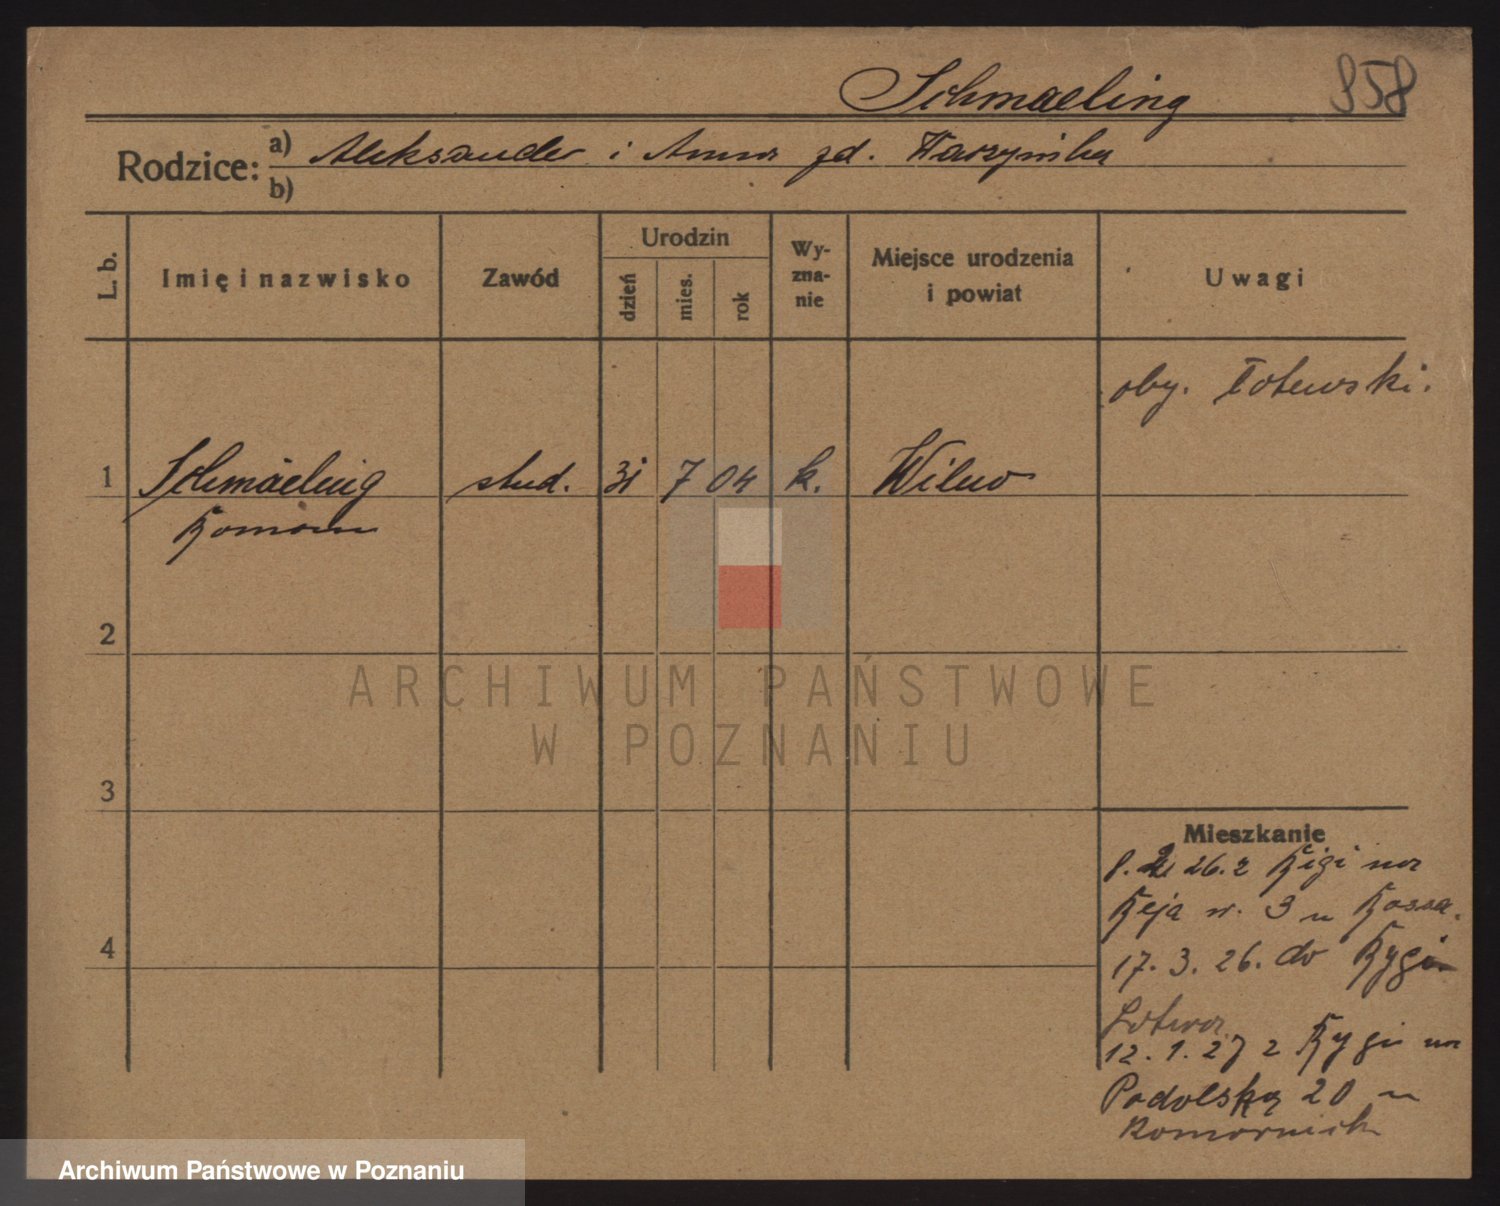 Schmaeling 958
Rodzice: a) Aleksander i Anna zd.
b)
L. b. Imię i nazwisko Zawód Urodzin dzień mies. rok Wyznanie Miejsce urodzenia i powiat Uwagi
oby. łotewski.
1 Schmaeling stud. 31 7 04 k. Wilno
Roman
2
ARCHIWUM PAŃSTWOWE
W POZNANIU
3
Mieszkanie
26. z Rigi na
Reja n. 3 u
4
17. 3. 26. do Rygi
Łotwa
12. 1. 27 z Rygi na
Podolską 20 u
Archiwum Państwowe w Poznaniu